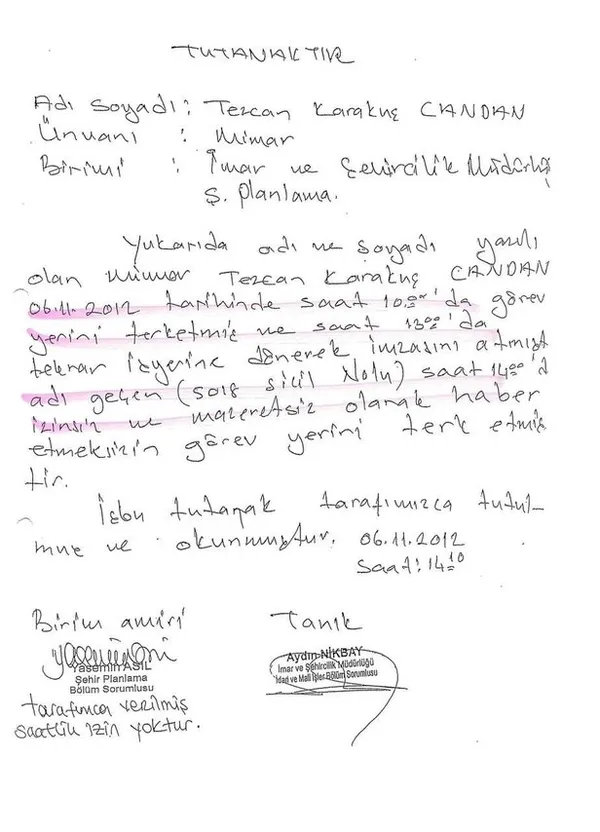 TUTANAKTIR
Adı Soyadı : Tezcan Karakuş CANDAN
Ünvanı : Mimar
Birimi : İmar ve Şehircilik Müdürlüğü
Ş. Planlama.
Yukarıda adı ve soyadı yazılı
olan Mimar Tezcan Karakuş CANDAN
06.11.2012 tarihinde saat 10.00'da görev
yerini terketmiş ve saat 13.00'da
tekrar işyerine dönerek imzasını atmıştı
adı geçen (5018 sicil Nolu) saat 14.00'd
izinsiz ve mazeretsiz olarak haber
etmeksizin görev yerini terk etmiş
tir.
İşbu tutanak tarafımızca tutul-
muş ve okunmuştur. 06.11.2012
Saat: 14.10
Birim amiri Tanık
Yasemin ASIL Aydın NİKBAY
Şehir Planlama İmar ve Şehircilik Müdürlüğü
Bölüm Sorumlusu İdari ve Mali İşler Bölüm Sorumlusu
tarafımca verilmiş
saatlik izin yoktur.